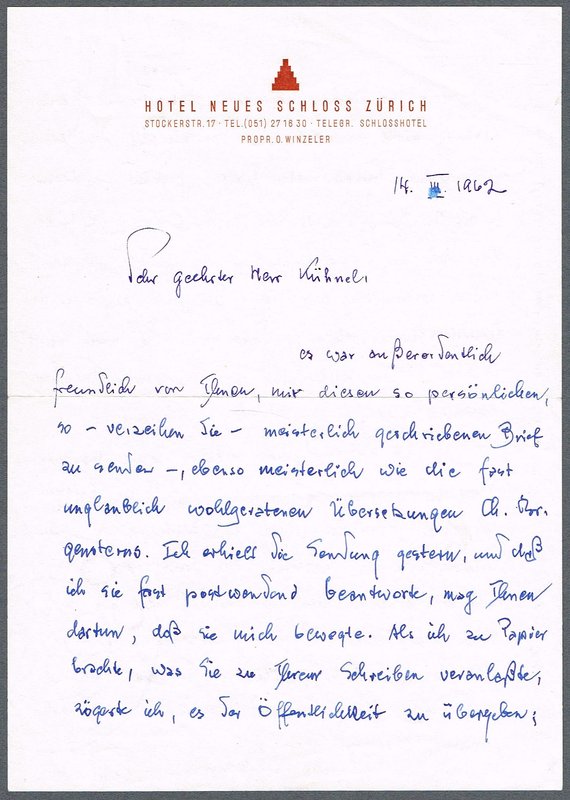 HOTEL NEUES SCHLOSS ZÜRICH
STOCKERSTR. 17 · TEL. (051) 27 16 30 · TELEGR. SCHLOSSHOTEL
PROPR. O. WINZELER
14. III. 1962
Sehr geehrter Herr Kühnel,
es war außerordentlich
freundlich von Ihnen, mir diesen so persönlichen,
so – verzeihen Sie – meisterlich geschriebenen Brief
zu senden –, ebenso meisterlich wie die fast
unglaublich wohlgeratenen Übersetzungen Ch. Mor-
gensterns. Ich erhielt die Sendung gestern, und daß
ich sie fast postwendend beantworte, mag Ihnen
dartun, daß sie mich bewegte. Als ich zu Papier
brachte, was Sie zu Ihrem Schreiben veranlaßte,
zögerte ich, es der Öffentlichkeit zu übergeben;